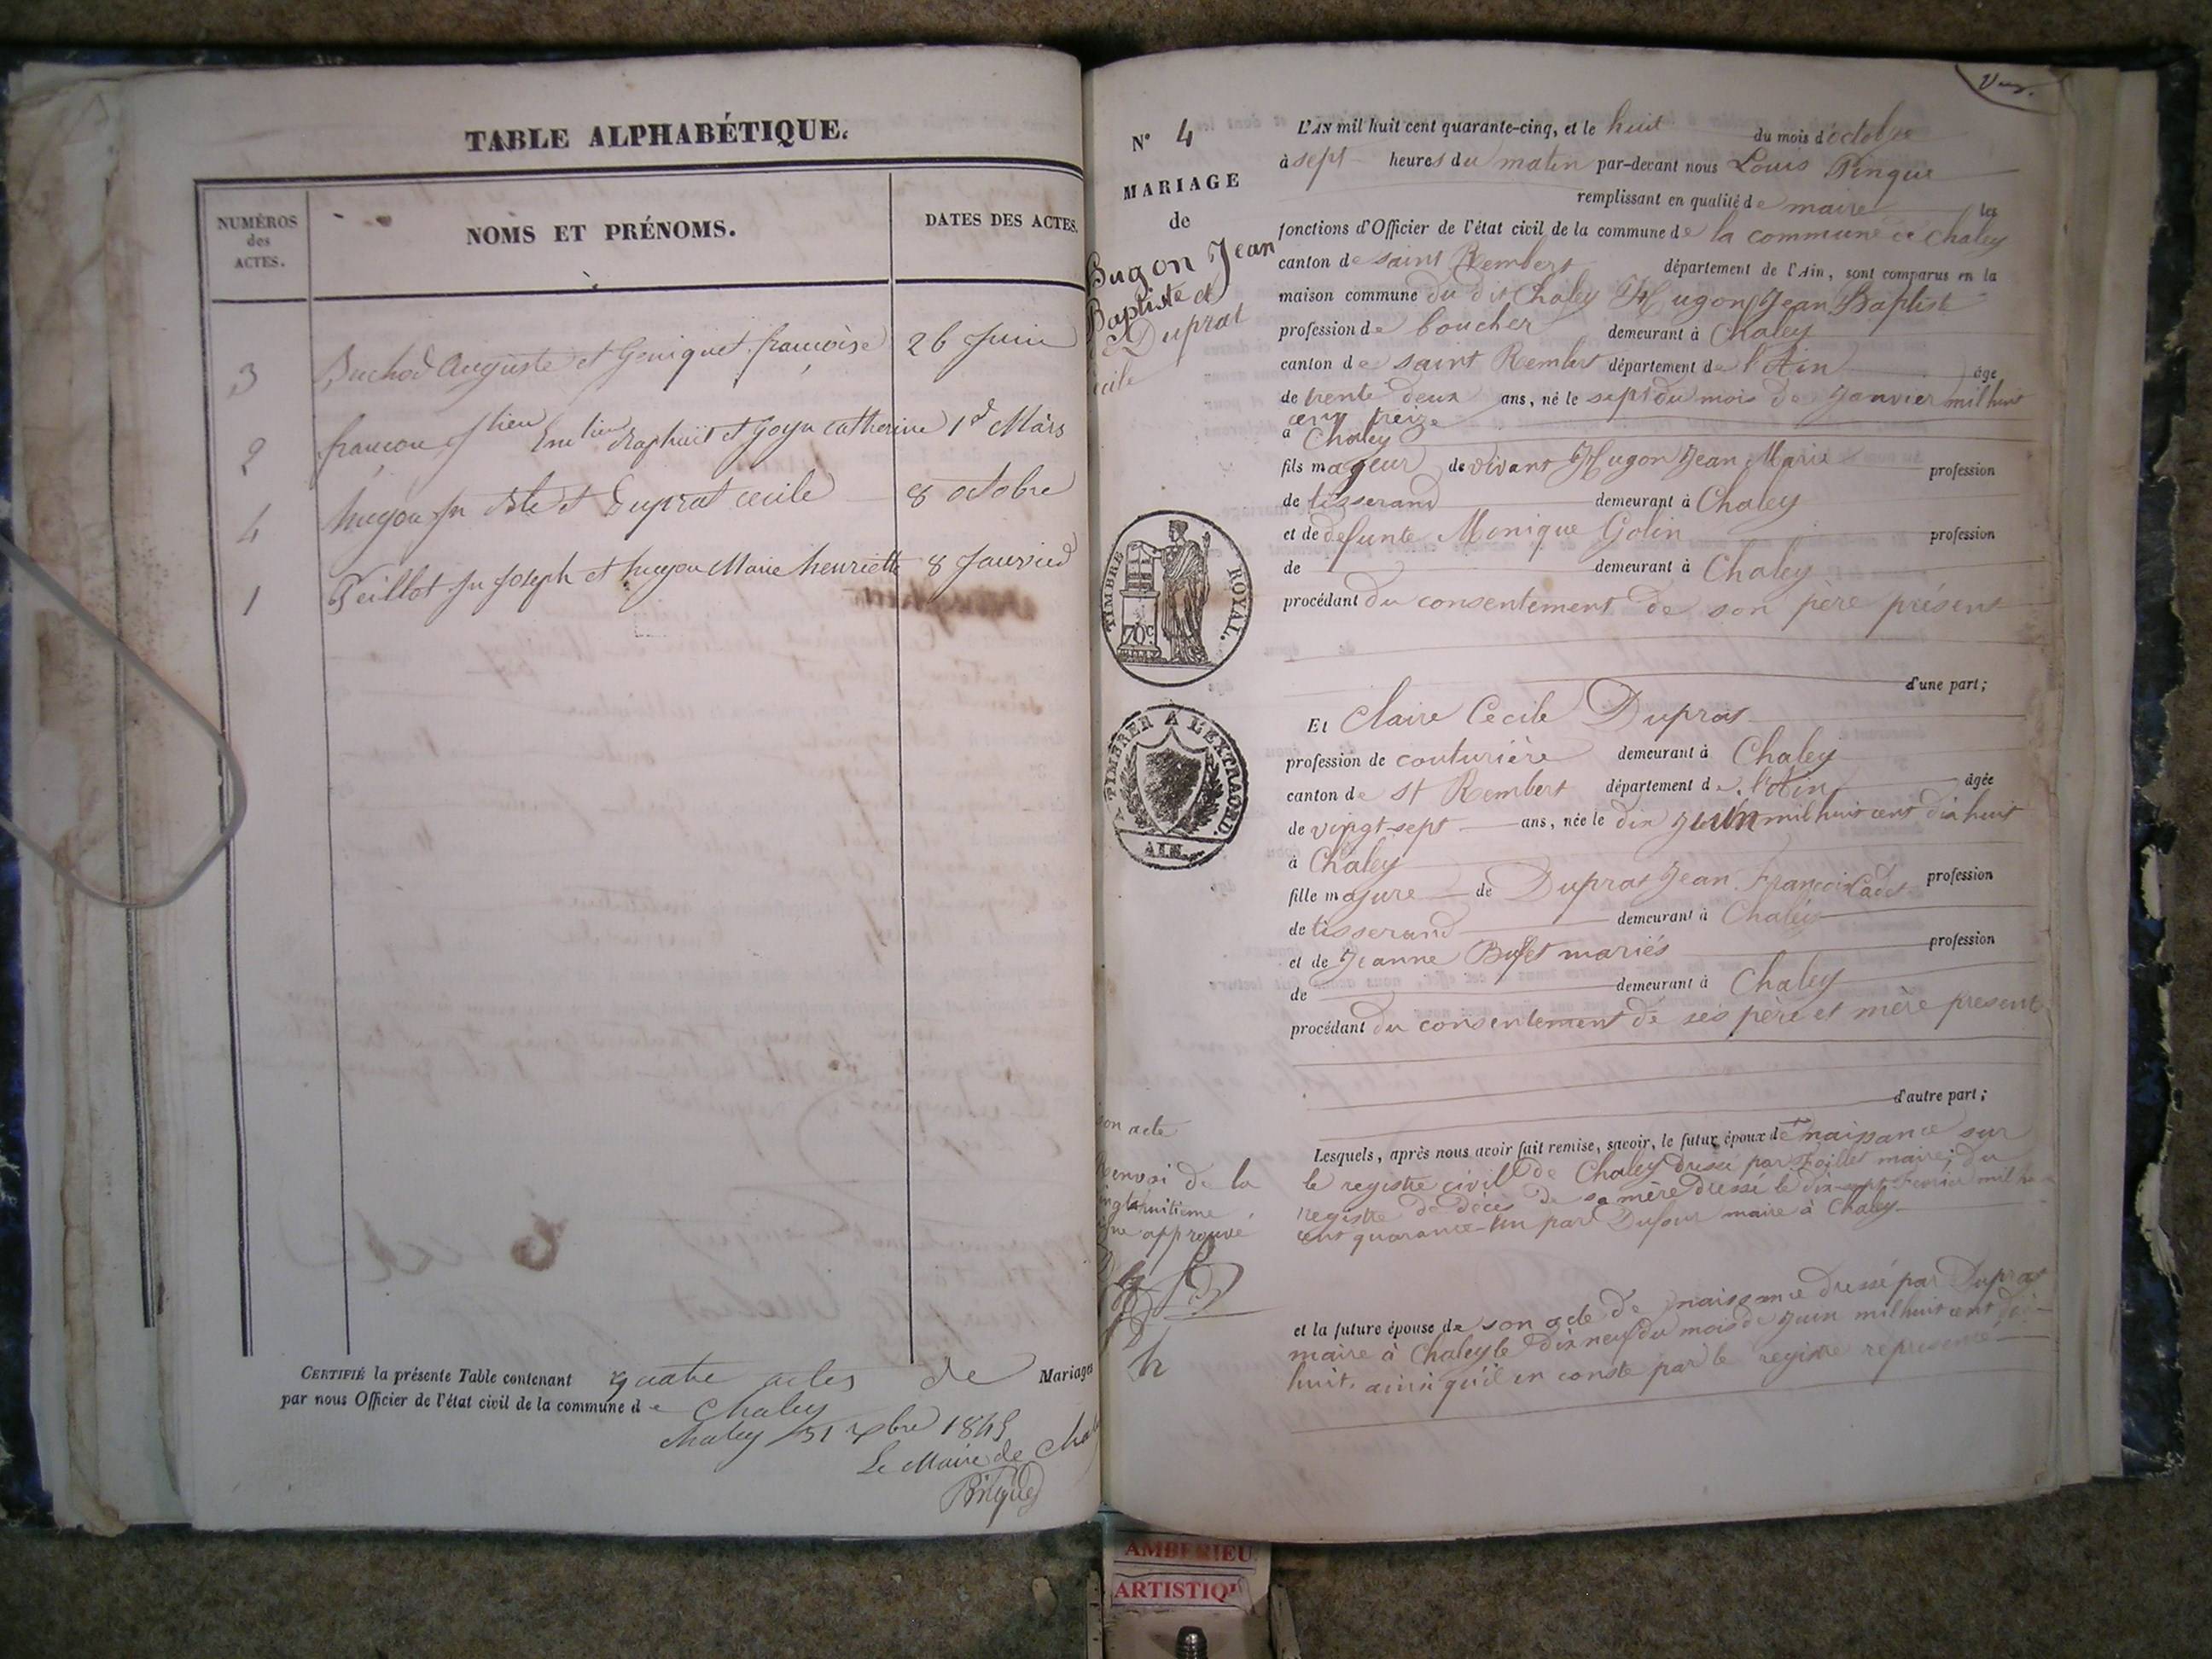 TABLE ALPHABÉTIQUE.
NUMÉROS
des
ACTES.
NOMS ET PRÉNOMS.
DATES DES ACTES.
3 Buchod Auguste et Geniquet françoise 26 Juin
2 françon et Goyn Catherine 1er Mars
4 hugon Jn Bte et Duprat cecile 8 octobre
1 Teillot Jn Joseph et hugon Marie henriette 8 Janvier
CERTIFIÉ la présente Table contenant quatre actes de Mariages
par nous Officier de l'état civil de la commune de Chaley
Chaley 31 xbre 1845
Le Maire de Chal
Pingue
N° 4
MARIAGE
de
Hugon Jean
Baptiste et
Duprat
cile
TIMBRE ROYAL.
70c.
A TIMBRER A L'EXTRAORD.
AIN
son acte
Renvoi de la
ingt huitieme
gne approuvé
L'AN mil huit cent quarante-cinq, et le huit du mois d'octobre
à sept heures du matin par-devant nous Louis Pingue
remplissant en qualité de maire les
fonctions d'Officier de l'état civil de la commune de la commune de Chaley
canton de saint Rembert département de l'Ain, sont comparus en la
maison commune du dit Chaley Hugon Jean Baptiste
profession de boucher demeurant à Chaley
canton de saint Rembert département de l'Ain âgé
de trente deux ans, né le sept du mois de Janvier mil huit
cent treize
à Chaley
fils majeur de vivant Hugon Jean Marie profession
de tisserand demeurant à Chaley
et de defunte Monique Golin profession
de demeurant à Chaley
procédant du consentement de son père présent
d'une part;
Et Claire Cecile Duprat
profession de couturière demeurant à Chaley
canton de st Rembert département de l'Ain âgée
de vingt-sept ans, née le dix Juin mil huit cent dix huit
à Chaley
fille majure de Duprat Jean François Cadet profession
de tisserand demeurant à Chaley
et de Jeanne Buffet mariés profession
de demeurant à Chaley
procédant du consentement de ses père et mère present
d'autre part;
Lesquels, après nous avoir fait remise, savoir, le futur époux de naissance sur
le registre civil de Chaley dressé par maire; du
registre de décès de sa mère dressé le dix-sept fevrier mil hu
cent quarante-un par Dufour maire à Chaley
et la future épouse de son acte de naissance dressé par Duprat
maire à Chaley le dix neuf du mois de Juin mil huit cent dix
huit. ainsi qu'il en conste par le registre représenté
AMBERIEU
ARTISTIQU